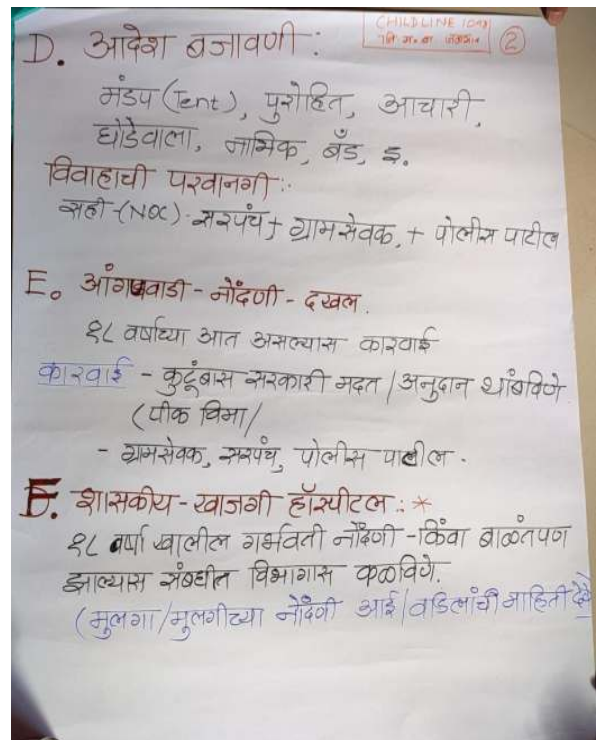 CHILDLINE 1098
②
D. आदेश बजावणी :
मंडप (Tent), पुरोहित, आचारी,
घोडेवाला, नाभिक, बँड, इ.
विवाहाची परवानगी :
सही (NOC) - सरपंच + ग्रामसेवक, + पोलीस पाटील
E. आंगणवाडी - नोंदणी - दखल.
१८ वर्षाच्या आत असल्यास कारवाई
कारवाई - कुटूंबास सरकारी मदत / अनुदान थांबविणे
(पीक विमा /
- ग्रामसेवक, सरपंच, पोलीस पाटील .
F. शासकीय - खाजगी हॉस्पीटल : *
१८ वर्षा खालील गर्भवती नोंदणी - किंवा बाळंतपण
झाल्यास संबधीत विभागास कळविणे.
(मुलगा / मुलगीच्या नोंदणी आई / वडिलांची माहिती देणे